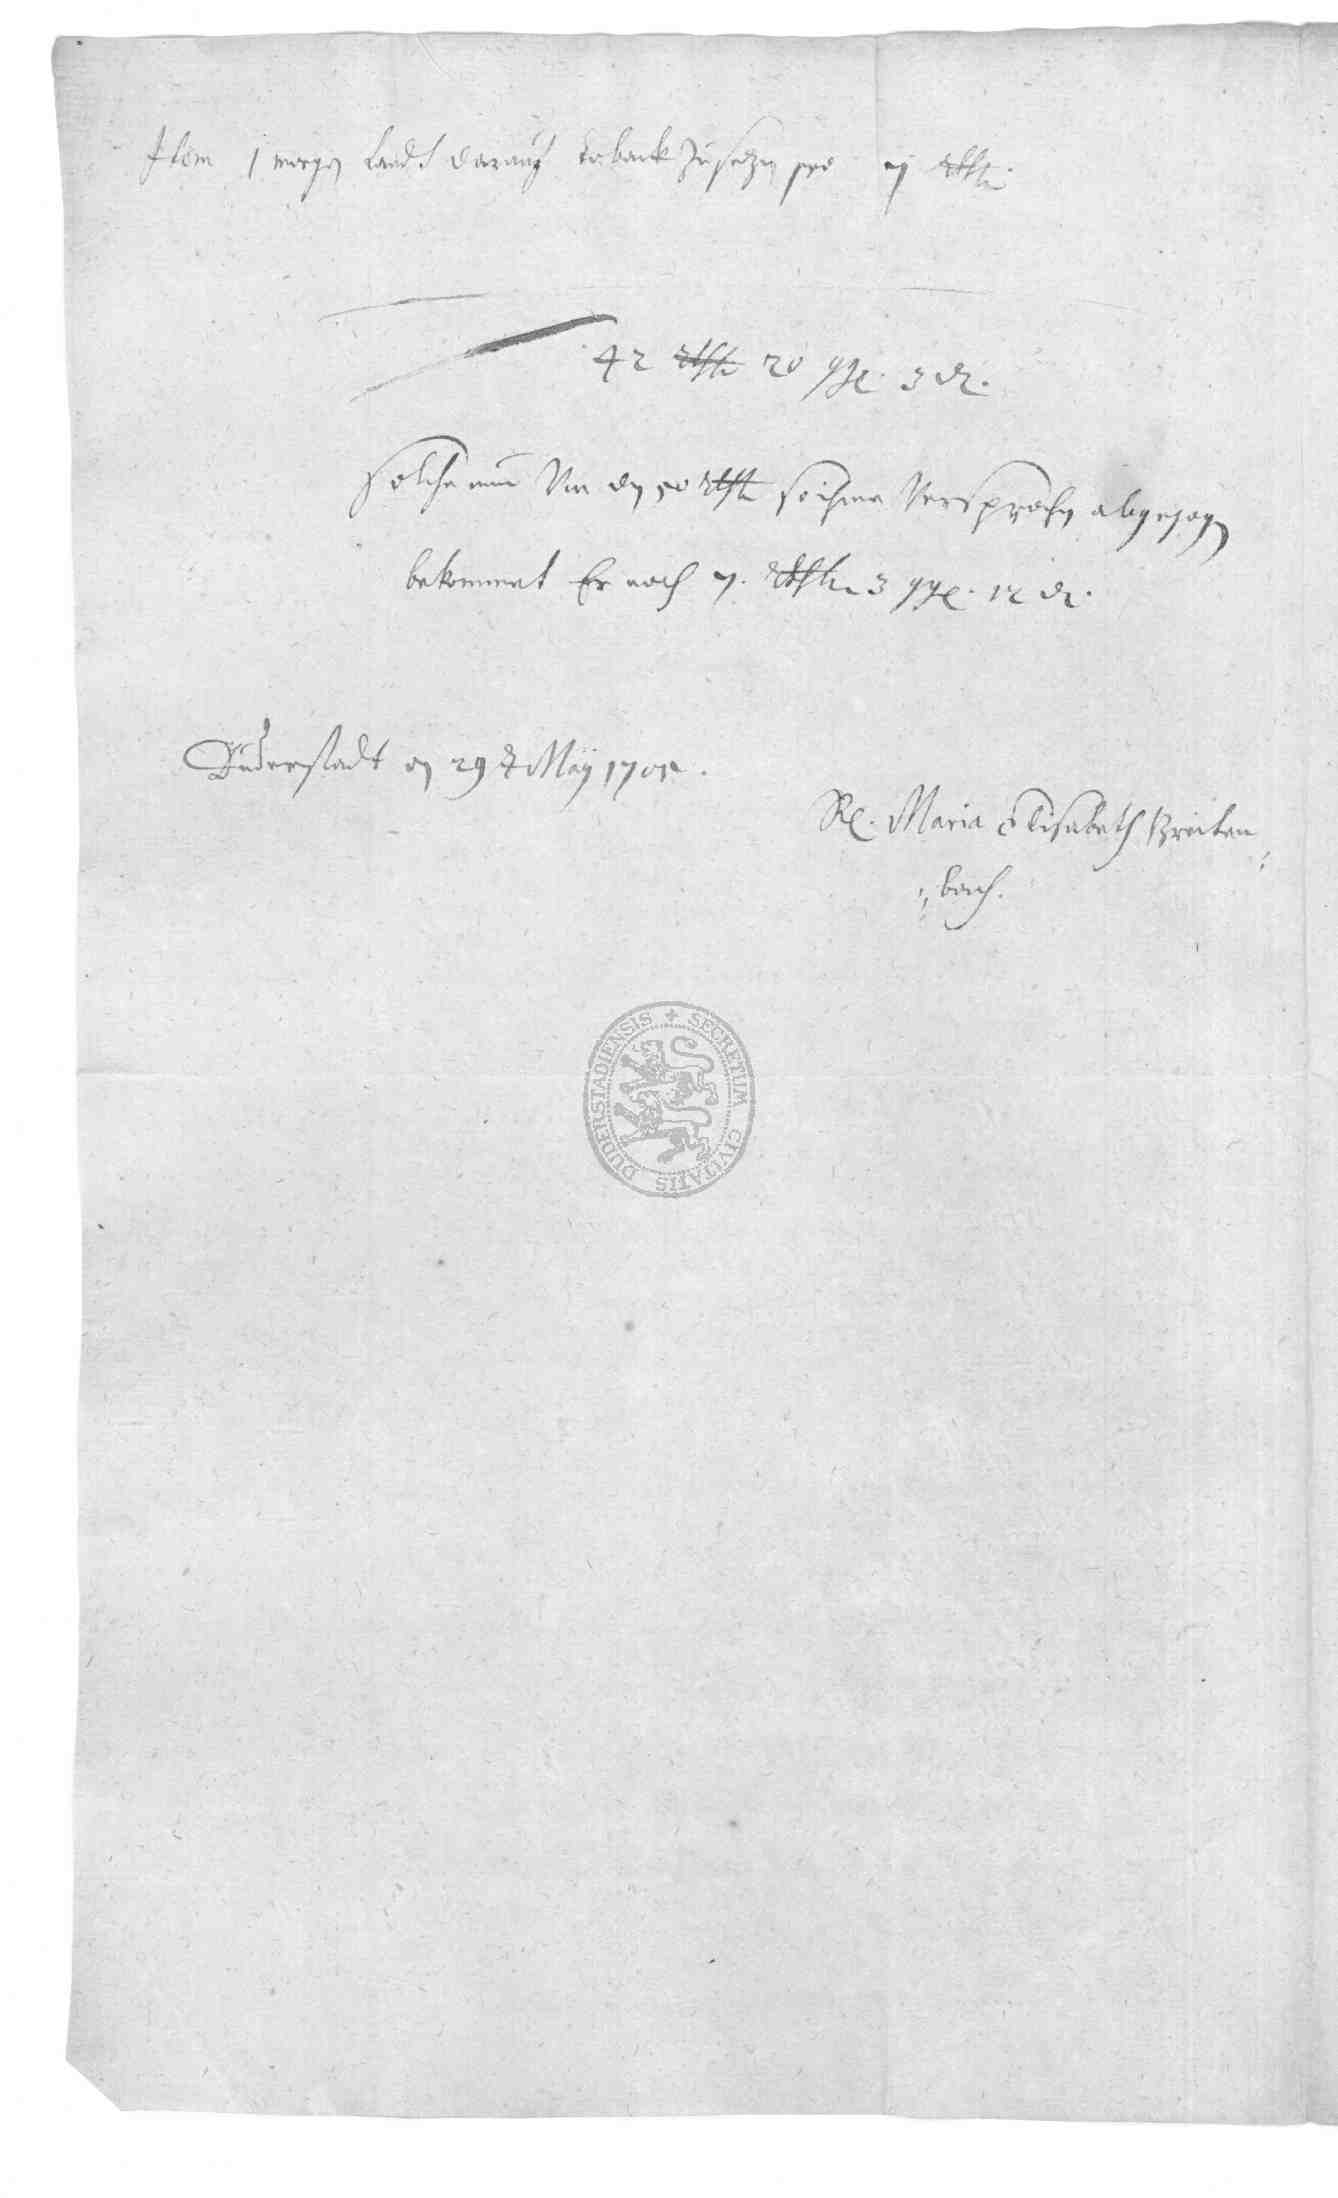 Item 1 morgen Landt darauf toback zu setzen pro 7 Rthlr
42 Rthlr 20 ggl. 3 d.
solche nun Von den 50 Rthlr so ihme Versprochen abgezogen
bekommet Er noch 7. Rthlr 3 ggl. 12 d.
Duderstadt den 29 t May
R. Maria Elisabeth Breiten
bach.
SECRETUM CIVITATIS DUDERSTADIENSIS